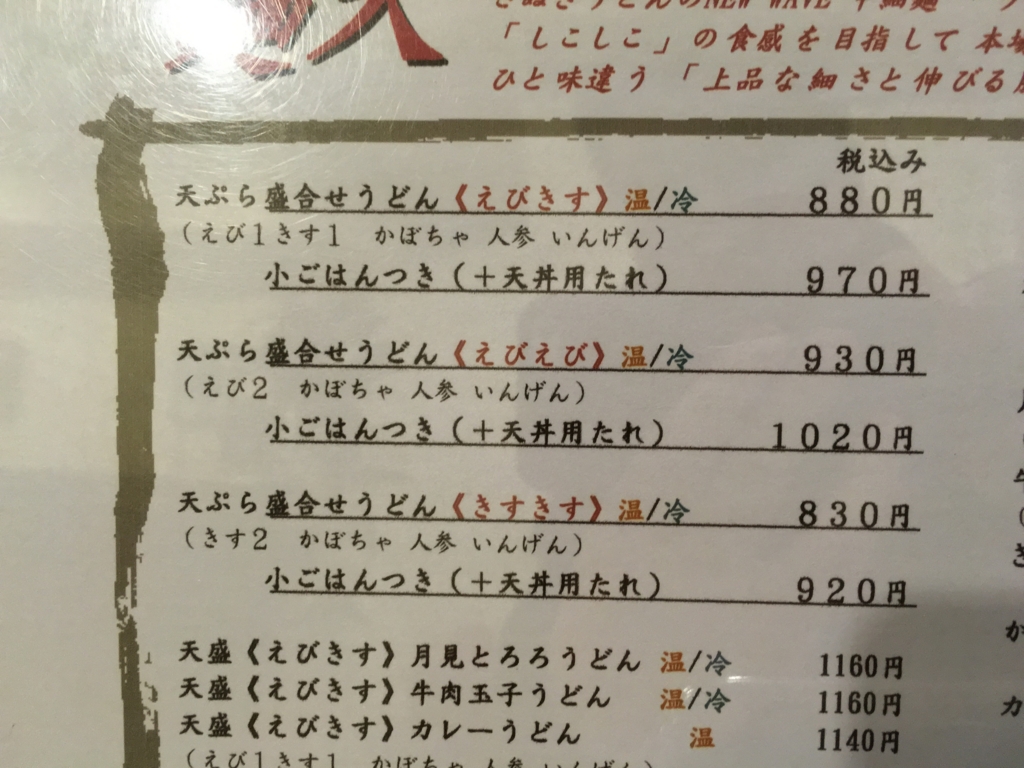 さぬきうどんのNEW WAVE
「しこしこ」の食感を目指して 本場
ひと味違う 「上品な細さと伸びる
税込み
天ぷら盛合せうどん《えびきす》温/冷 880円
(えび1きす1 かぼちゃ 人参 いんげん)
小ごはんつき(+天丼用たれ) 970円
天ぷら盛合せうどん《えびえび》温/冷 930円
(えび2 かぼちゃ 人参 いんげん)
小ごはんつき(+天丼用たれ) 1020円
天ぷら盛合せうどん《きすきす》温/冷 830円
(きす2 かぼちゃ 人参 いんげん)
小ごはんつき(+天丼用たれ) 920円
天盛《えびきす》月見とろろうどん 温/冷 1160円
天盛《えびきす》牛肉玉子うどん 温/冷 1160円
天盛《えびきす》カレーうどん 温 1140円
(えび1きす1 かぼちゃ 人参 いんげん)